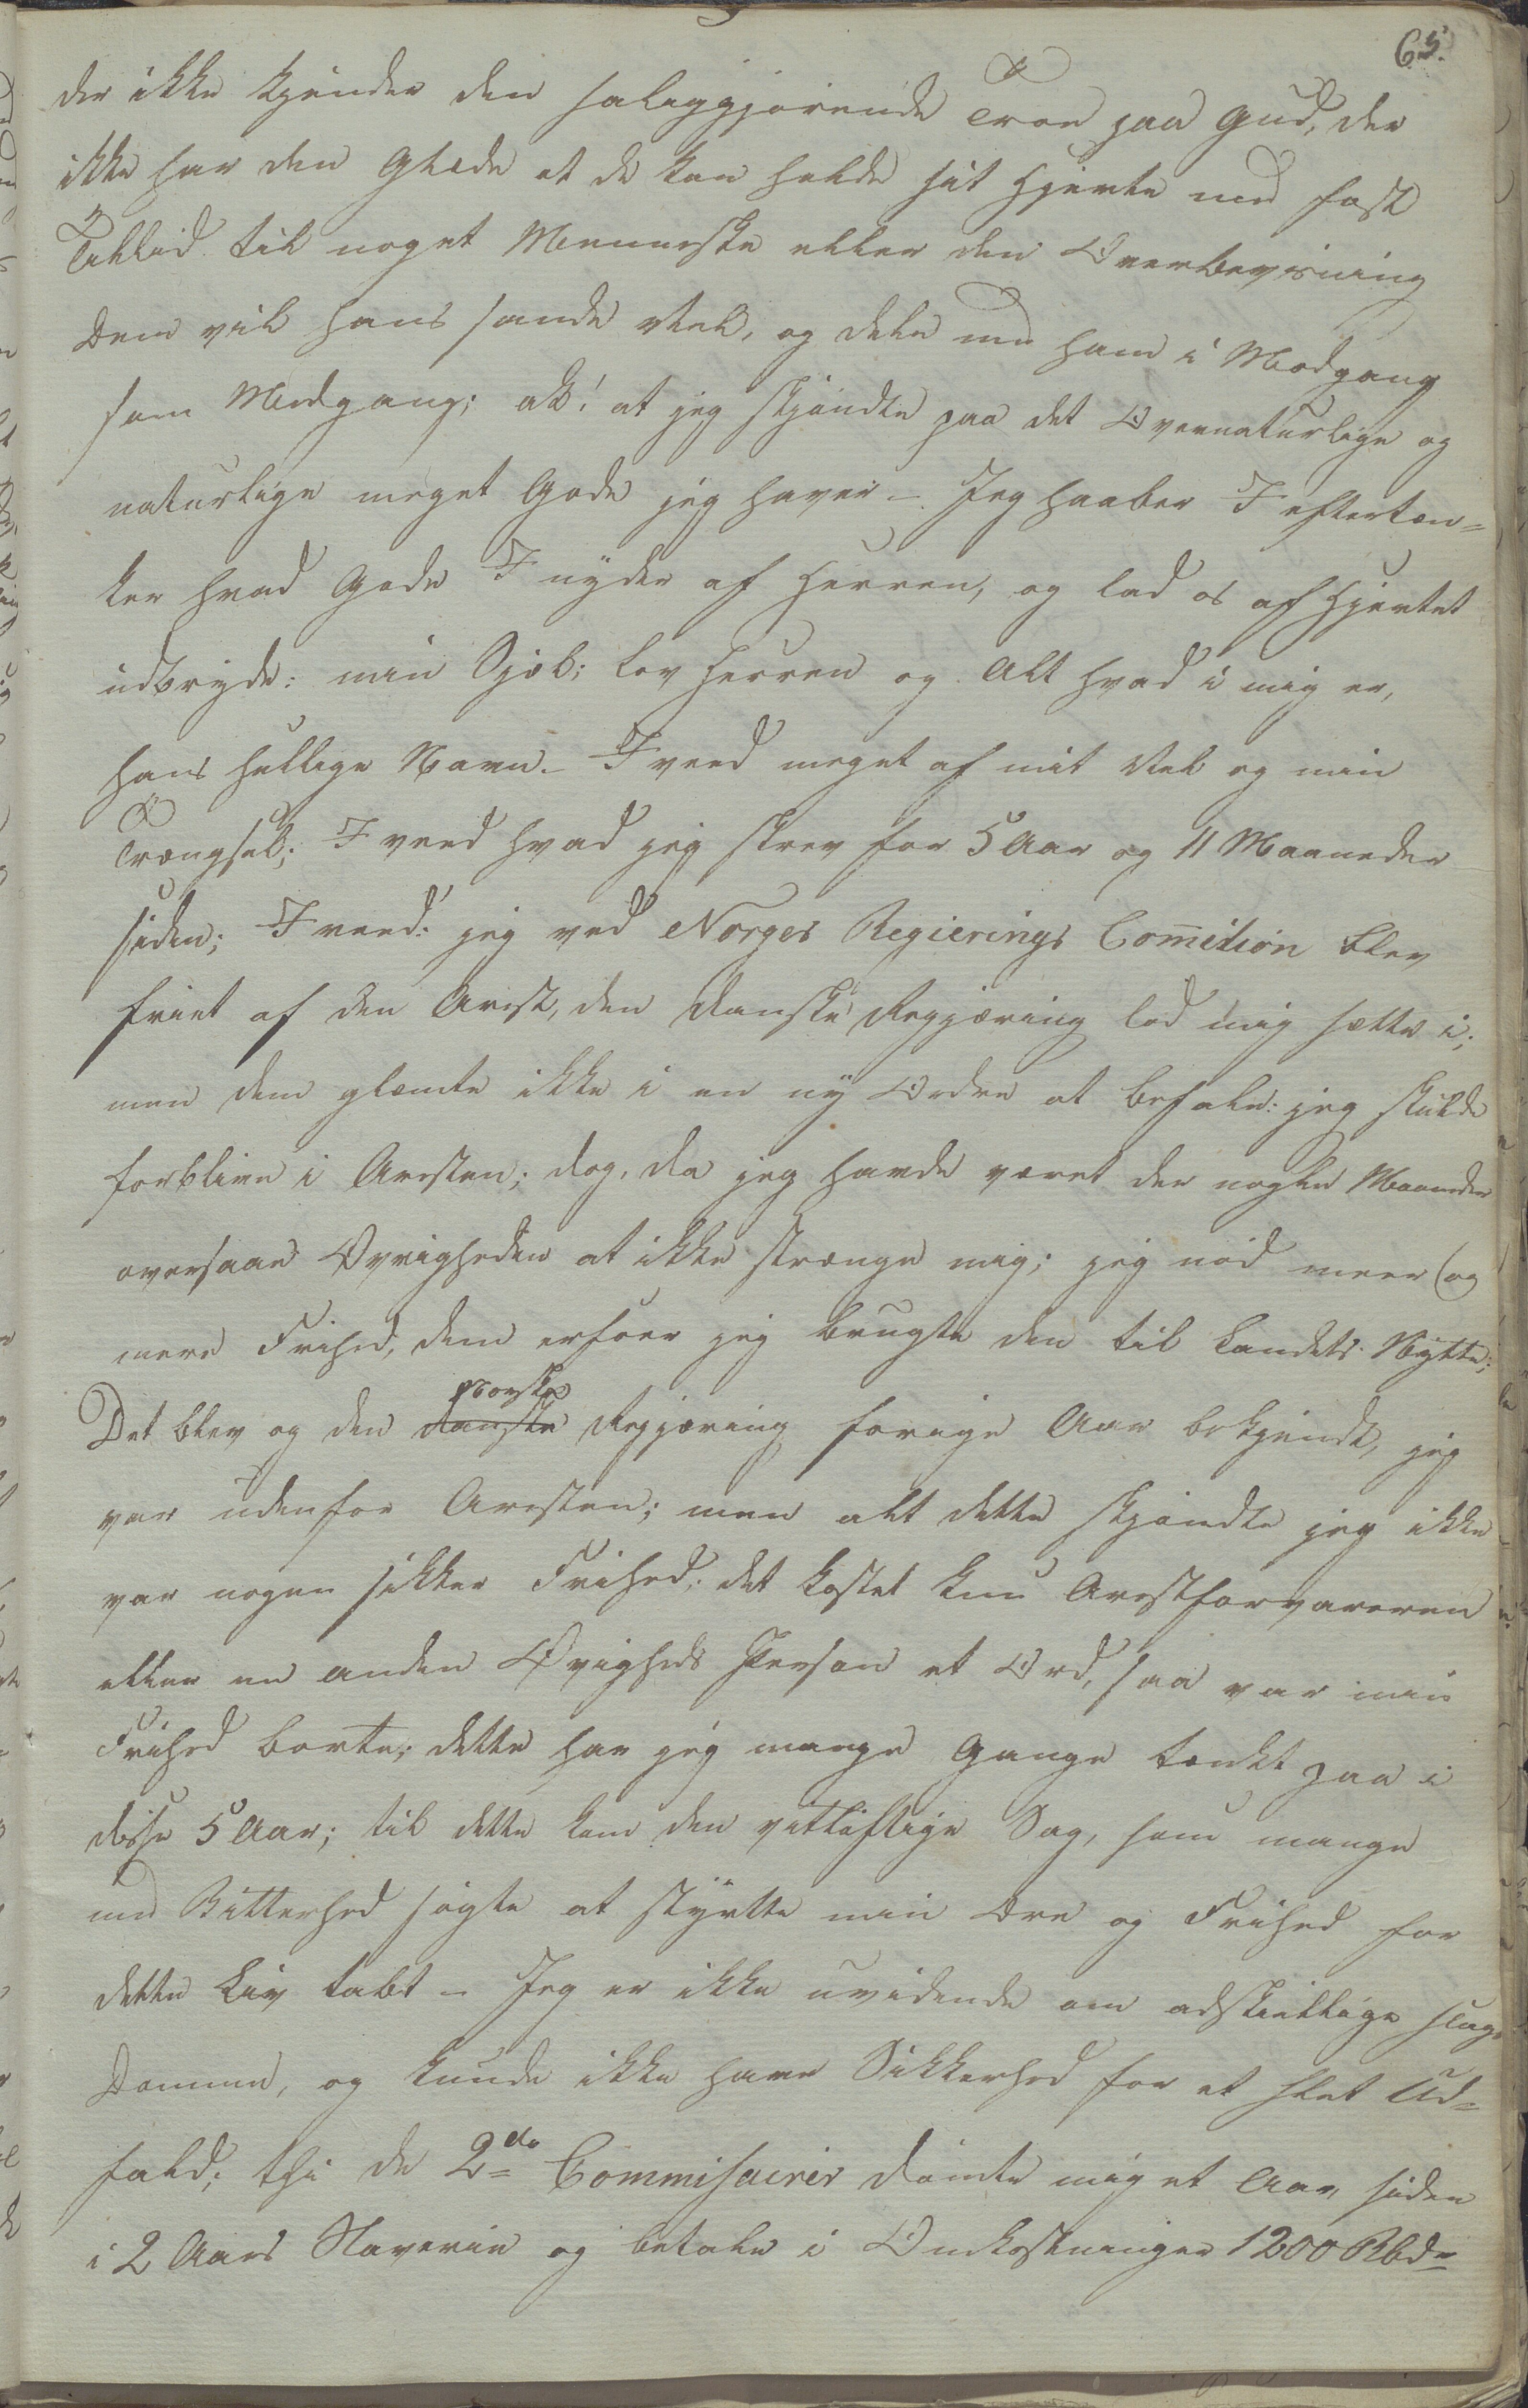 65.
der ikke kjender den saliggjørende Troe paa Gud, der
ikke har den Glæde at de kan holde sit Hjerte med fast
Tillid til noget Menneske eller den Overbeviisning
Dem vil hans sande Vel, og dele med ham i Modgang
som Medgang; ak! at jeg skjøndte paa det Overnaturlige og
naturlige meget Gode jeg haver – Jeg haaber I eftertæn=
ker hvad Gode I nyder af Herren, og lad os af Hjertet
udbryde: min Sjæl; lov Herren og Alt hvad i mig er,
hans hellige Navn. – I veed meget af mit Vel og min
Trængsel; I veed hvad jeg skrev for 5 Aar og 11 Maaneder
siden; I veed: jeg ved Norges Regierings Comission blev
friet af den Arest, den danske Regjæring lod mig sætte i;
men dem glemte ikke i en ny Ordre at befale: jeg skulde
forblive i Aresten; dog, da jeg havde været der nogle Maaneder
oversaae Øvrigheden at ikke strænge mig; jeg nød meer (og
mere Frihed, dem erfoer jeg brugte den til Landets Nytte;
Det blev og den danske Norske Regjæring forrige Aar bekjendt, jeg
var udenfor Aresten; men alt dette skjøndte jeg ikke
var nogen sikker Frihed; det kostet kun Arestforvareren
eller en anden Øvrigheds Person et Ord, saa var min
Frihed borte; dette har jeg mange Gange tænkt paa i
disse 5 Aar; til dette kom den vitløftige Sag, som mange
med Bitterhed søgte at styrtte min Ære og Frihed for
dette Liv tabt – Jeg er ikke uvidende om adskiellige slags
Domme, og kunde ikke have Sikkerhed for et slet Ud=
fald; thi de 2de Commisairer dømte mig et Aar siden
i 2 Aars Slaverie og betale i Omkostninger 1200 Rbd